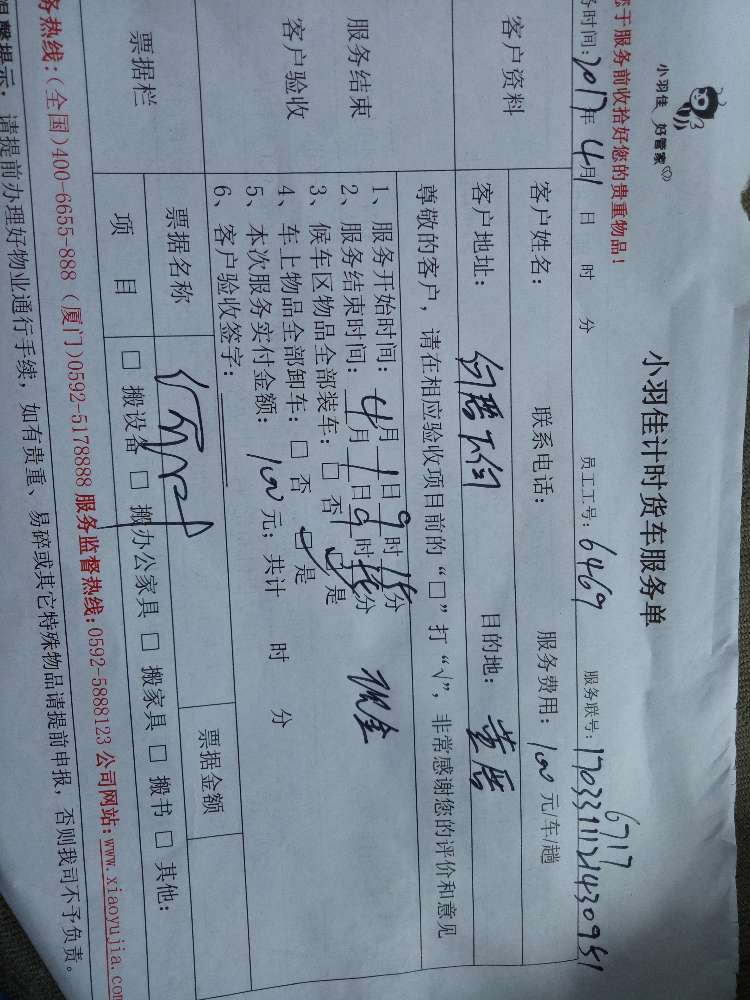 小羽佳 好管家
小羽佳计时货车服务单
您于服务前收拾好您的贵重物品！
务时间：2017年4月1日 时 分 员工工号：6469 服务联号：17033111121430951
6717
客户资料
客户姓名： 联系电话： 服务费用：100元/车/趟
客户地址： 目的地：
服务结束
客户验收
尊敬的客户，请在相应验收项目前的“□”打“√”，非常感谢您的评价和意见
1、服务开始时间：4月1日9时15分
2、服务结束时间：月1日9时分 现金
3、候车区物品全部装车：□ 否 □ 是
4、车上物品全部卸车：□ 否 □ 是
5、本次服务实付金额：100元；共计 时 分
6、客户验收签字：
票据栏
票据名称 票据金额
项目 □ 搬设备 □ 搬办公家具 □ 搬家具 □ 搬书 □ 其他：
务热线：(全国)400-6655-888（厦门)0592-5178888 服务监督热线：0592-5888123 公司网站：www.xiaoyujia.com
温馨提示：请提前办理好物业通行手续，如有贵重、易碎或其它特殊物品请提前申报，否则我司不予负责。